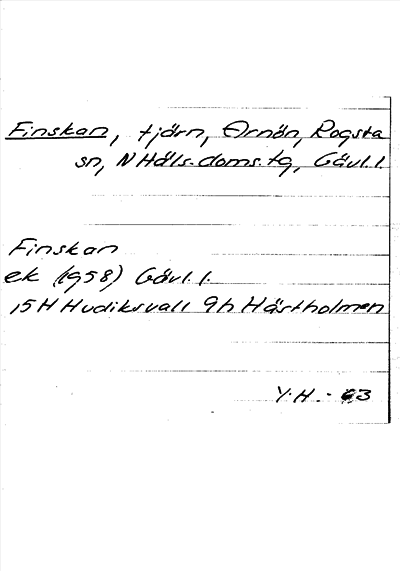 Finskan, tjärn, Arnön, Rogsta
sn, N Häls. doms. tg, Gävl. l.
Finskan
ek (1958) Gävl. l.
15H Hudiksvall 9h Hästholmen
Y.H. - 63